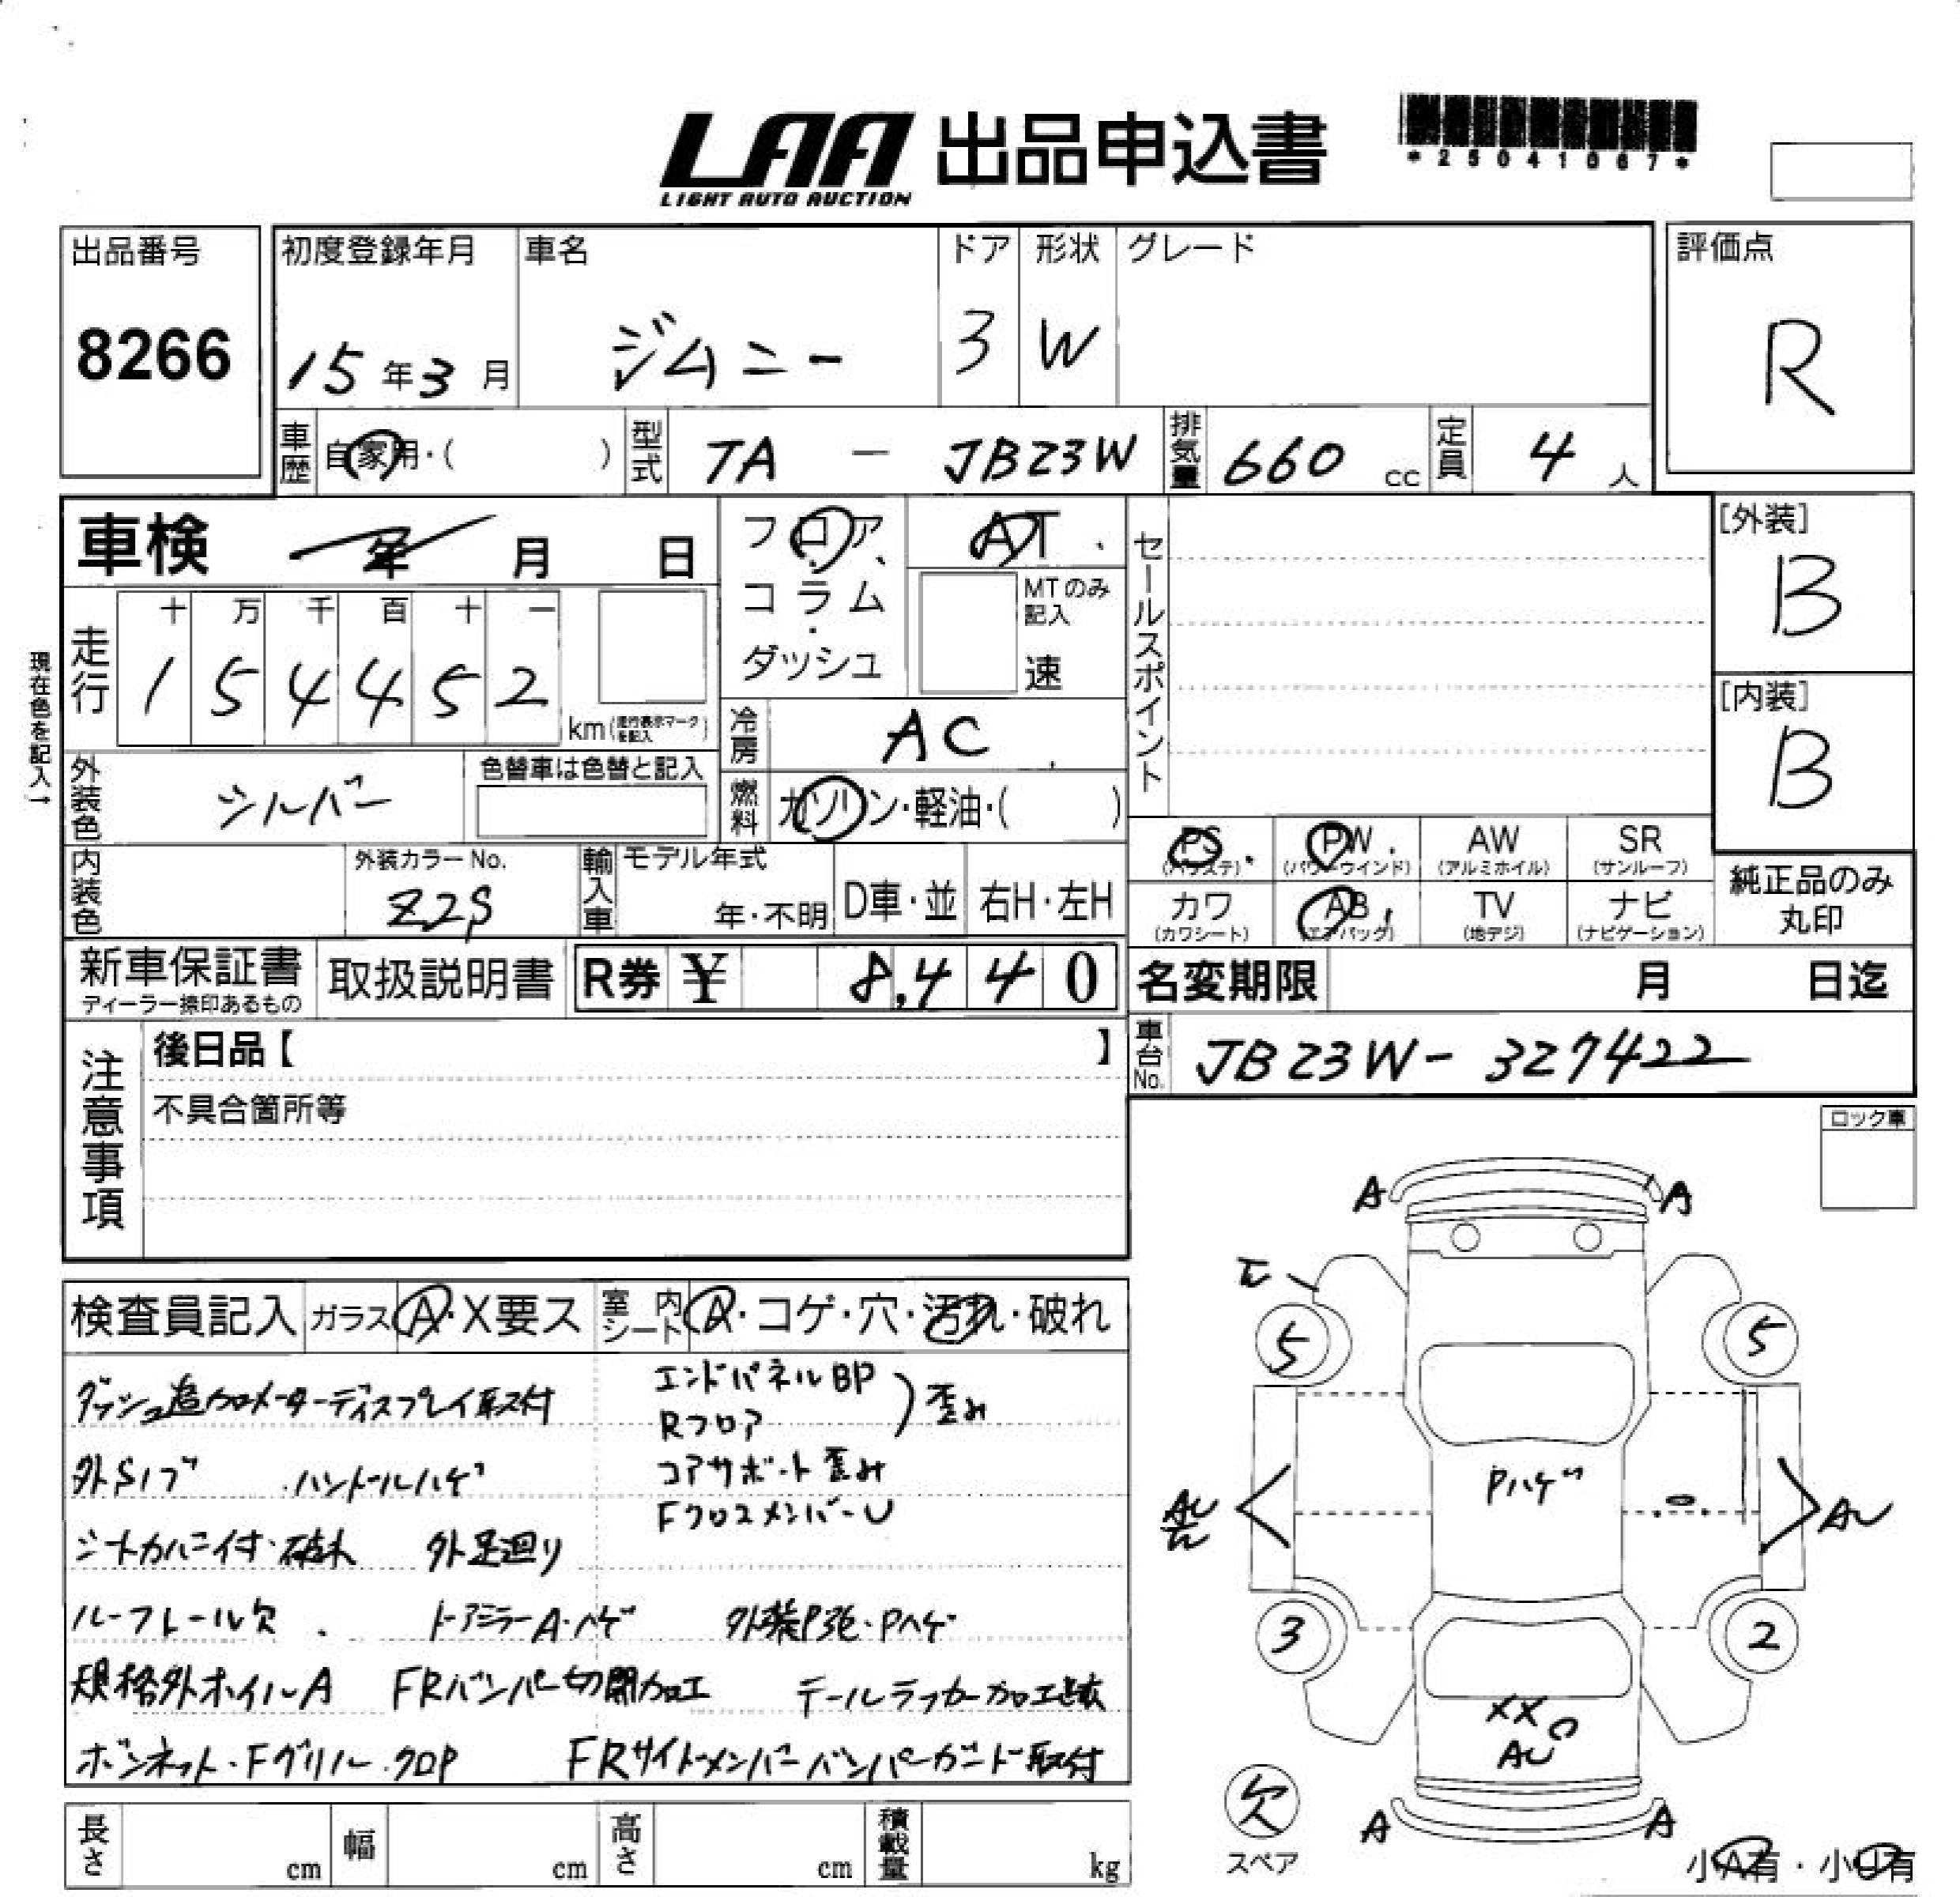 LAA 出品申込書
LIGHT AUTO AUCTION
*25041067*
出品番号
8266
初度登録年月
15年3月
車名
ジムニー
ドア
3
形状
W
グレード
評価点
R
車歴 自家用・( )
型式 TA - JB23W
排気量 660 cc
定員 4 人
車検 年 月 日
フロア・コラム・ダッシュ
AT
MTのみ記入
速
セールスポイント
[外装]
B
[内装]
B
現在色を記入→
走行
十 万 千 百 十 一
1 5 4 4 5 2
km(走行表示マークを記入)
冷房 AC
外装色 シルバー
色替車は色替と記入
燃料 ガソリン・軽油・( )
PS (パワステ)
PW (パワーウインド)
AW (アルミホイル)
SR (サンルーフ)
カワ (カワシート)
AB (エアバッグ)
TV (地デジ)
ナビ (ナビゲーション)
純正品のみ丸印
内装色
外装カラーNo.
Z2S
輸入車
モデル年式
年・不明
D車・並
右H・左H
新車保証書
ディーラー捺印あるもの
取扱説明書
R券 ¥ 8,440
名変期限 月 日迄
注意事項
後日品【 】
不具合箇所等
車台No. JB23W-327422
ロック車
検査員記入 ガラス A・X要ス 室内シート A・コゲ・穴・汚れ・破れ
ダッシュ追加メーターディスプレイ取付
エンドパネルBP
Rフロア
)歪み
外Sノブ ハンドルハゲ
コアサポート歪み
Fクロスメンバー U
シートカバー付・破れ 外足廻り
ルーフレール欠 ドアミラーA・ハゲ 外装P色・Pハゲ
規格外ホイルA FRバンパー切開加工 テールランプカー加工
ボンネット・Fグリル クロP FRサイドメンバーバンパーガード取付
A A
エ
5 5
Pハゲ
AU
AU
3 2
XX
AU
A A
欠
スペア
小A有・小U有
長さ cm
幅 cm
高さ cm
積載量 kg